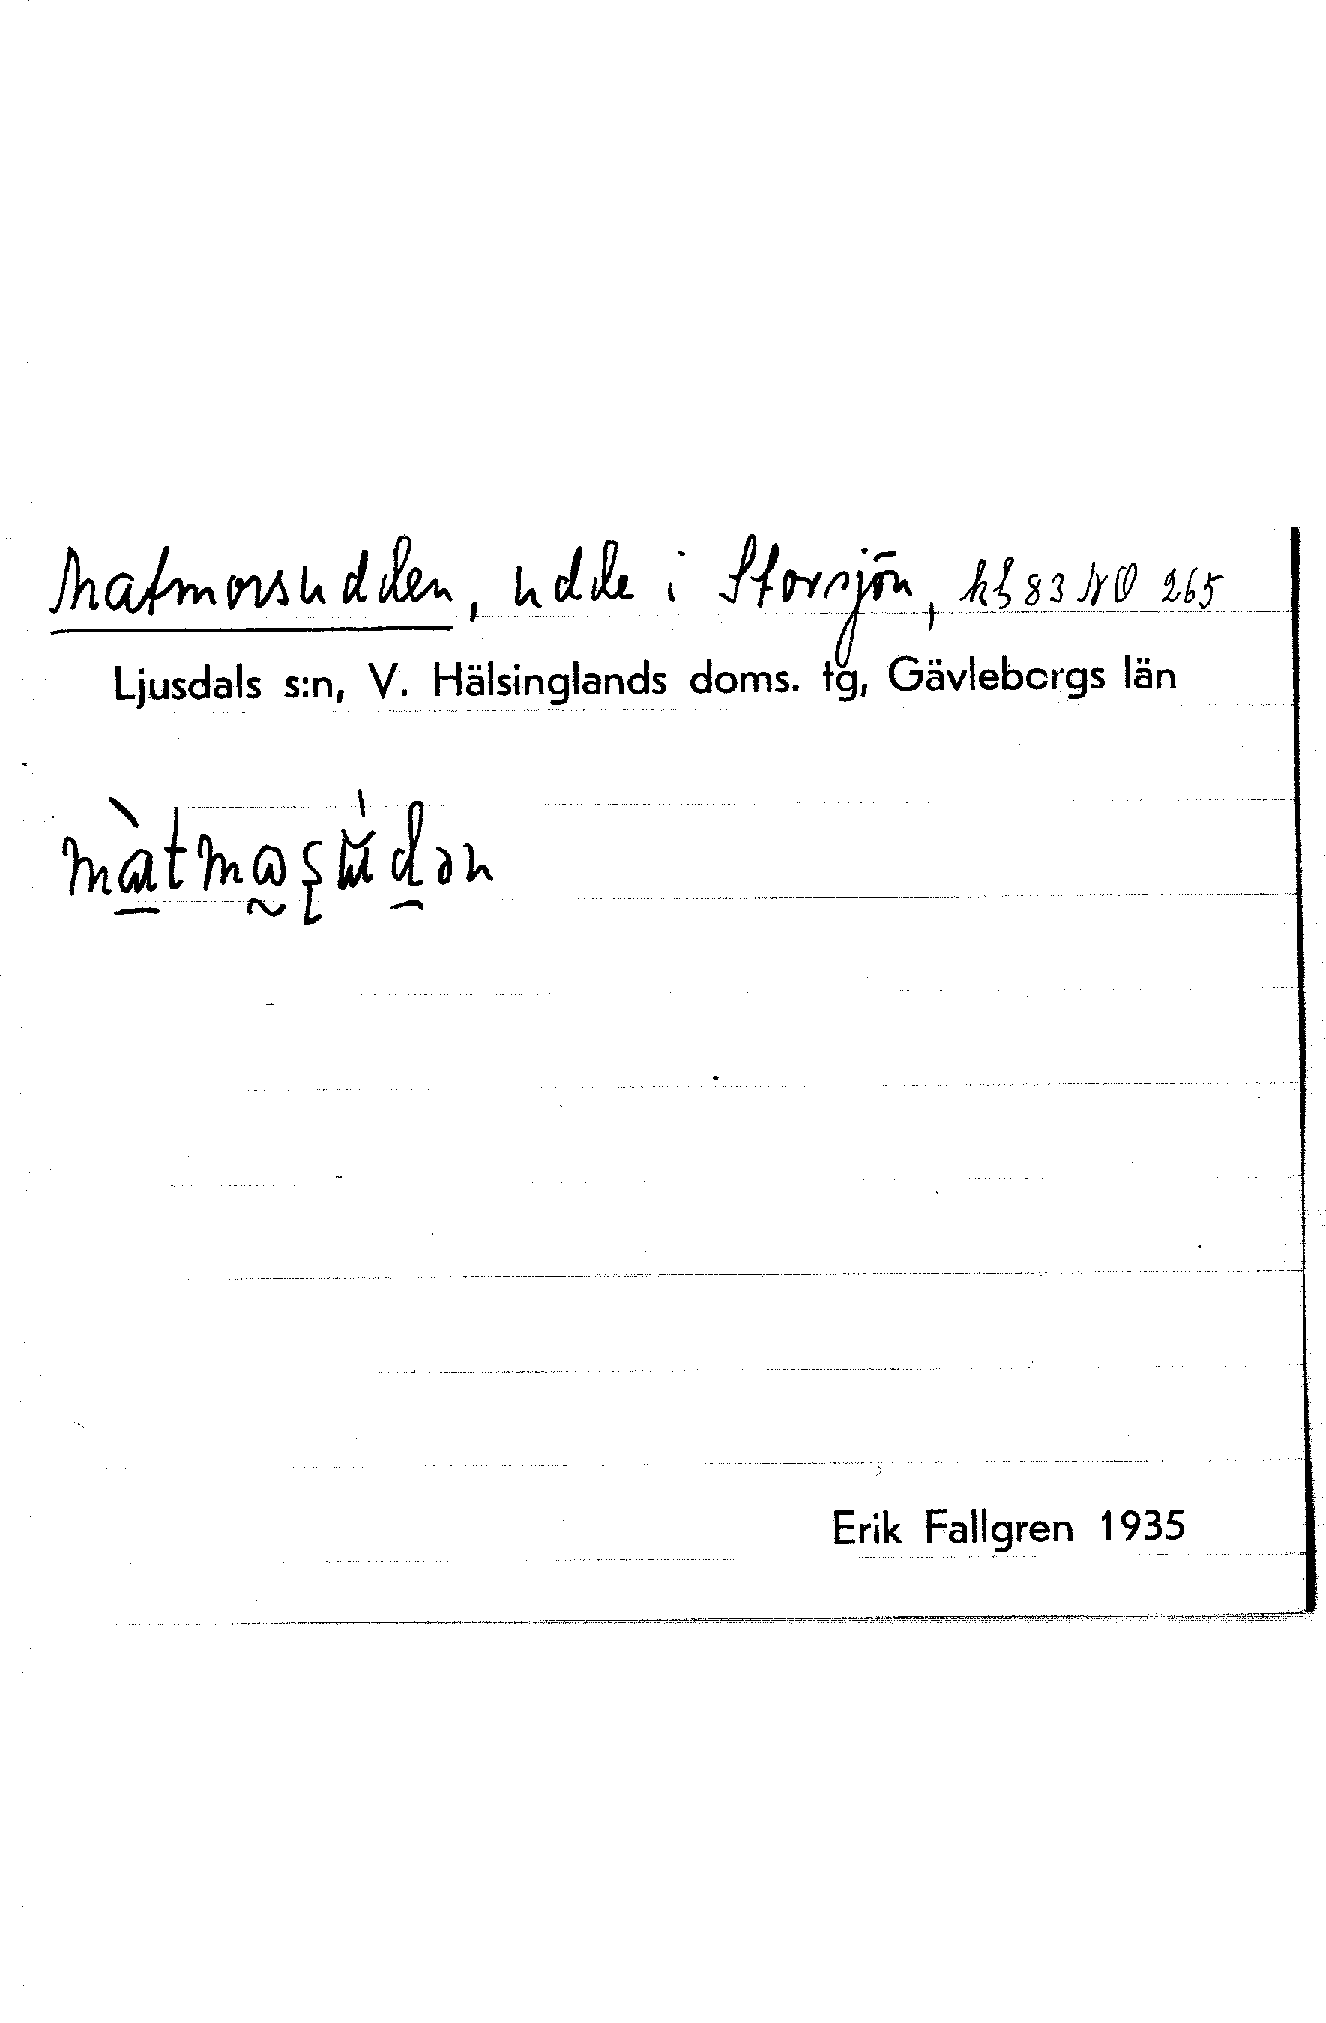 Matmorsudden, udde i Storsjön, kbl 83 NO 265
Ljusdals s:n, V. Hälsinglands doms. tg, Gävleborgs län
màtmaşúdən
Erik Fallgren 1935